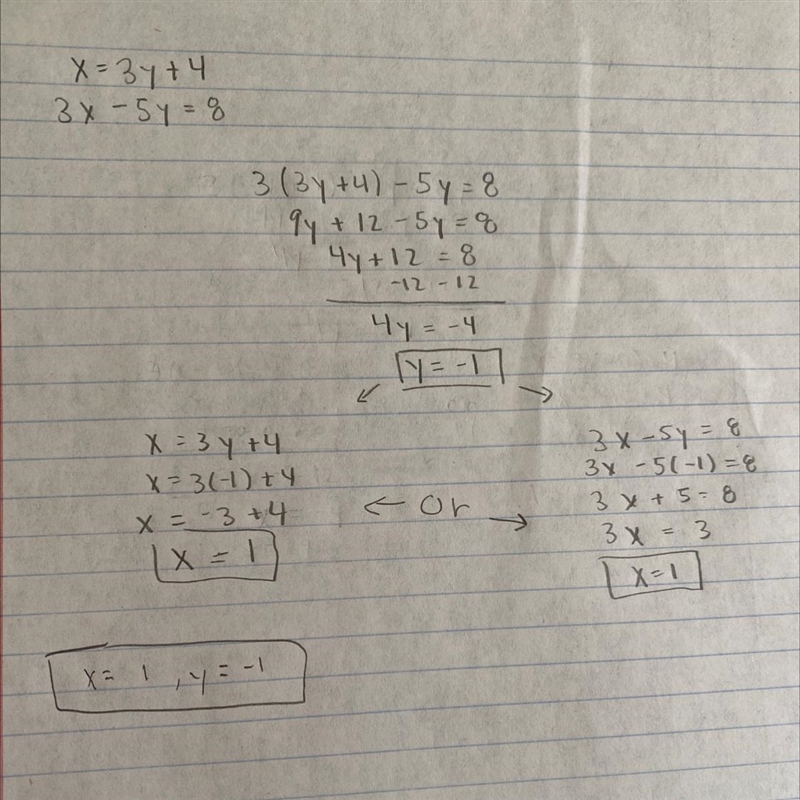 x = 3y + 4
3x - 5y = 8
3(3y+4) - 5y = 8
9y + 12 - 5y = 8
4y + 12 = 8
-12 -12
4y = -4
y = -1
x = 3y + 4
x = 3(-1) + 4
x = -3 + 4
x = 1
← Or →
3x - 5y = 8
3x - 5(-1) = 8
3x + 5 = 8
3x = 3
x = 1
x = 1 , y = -1